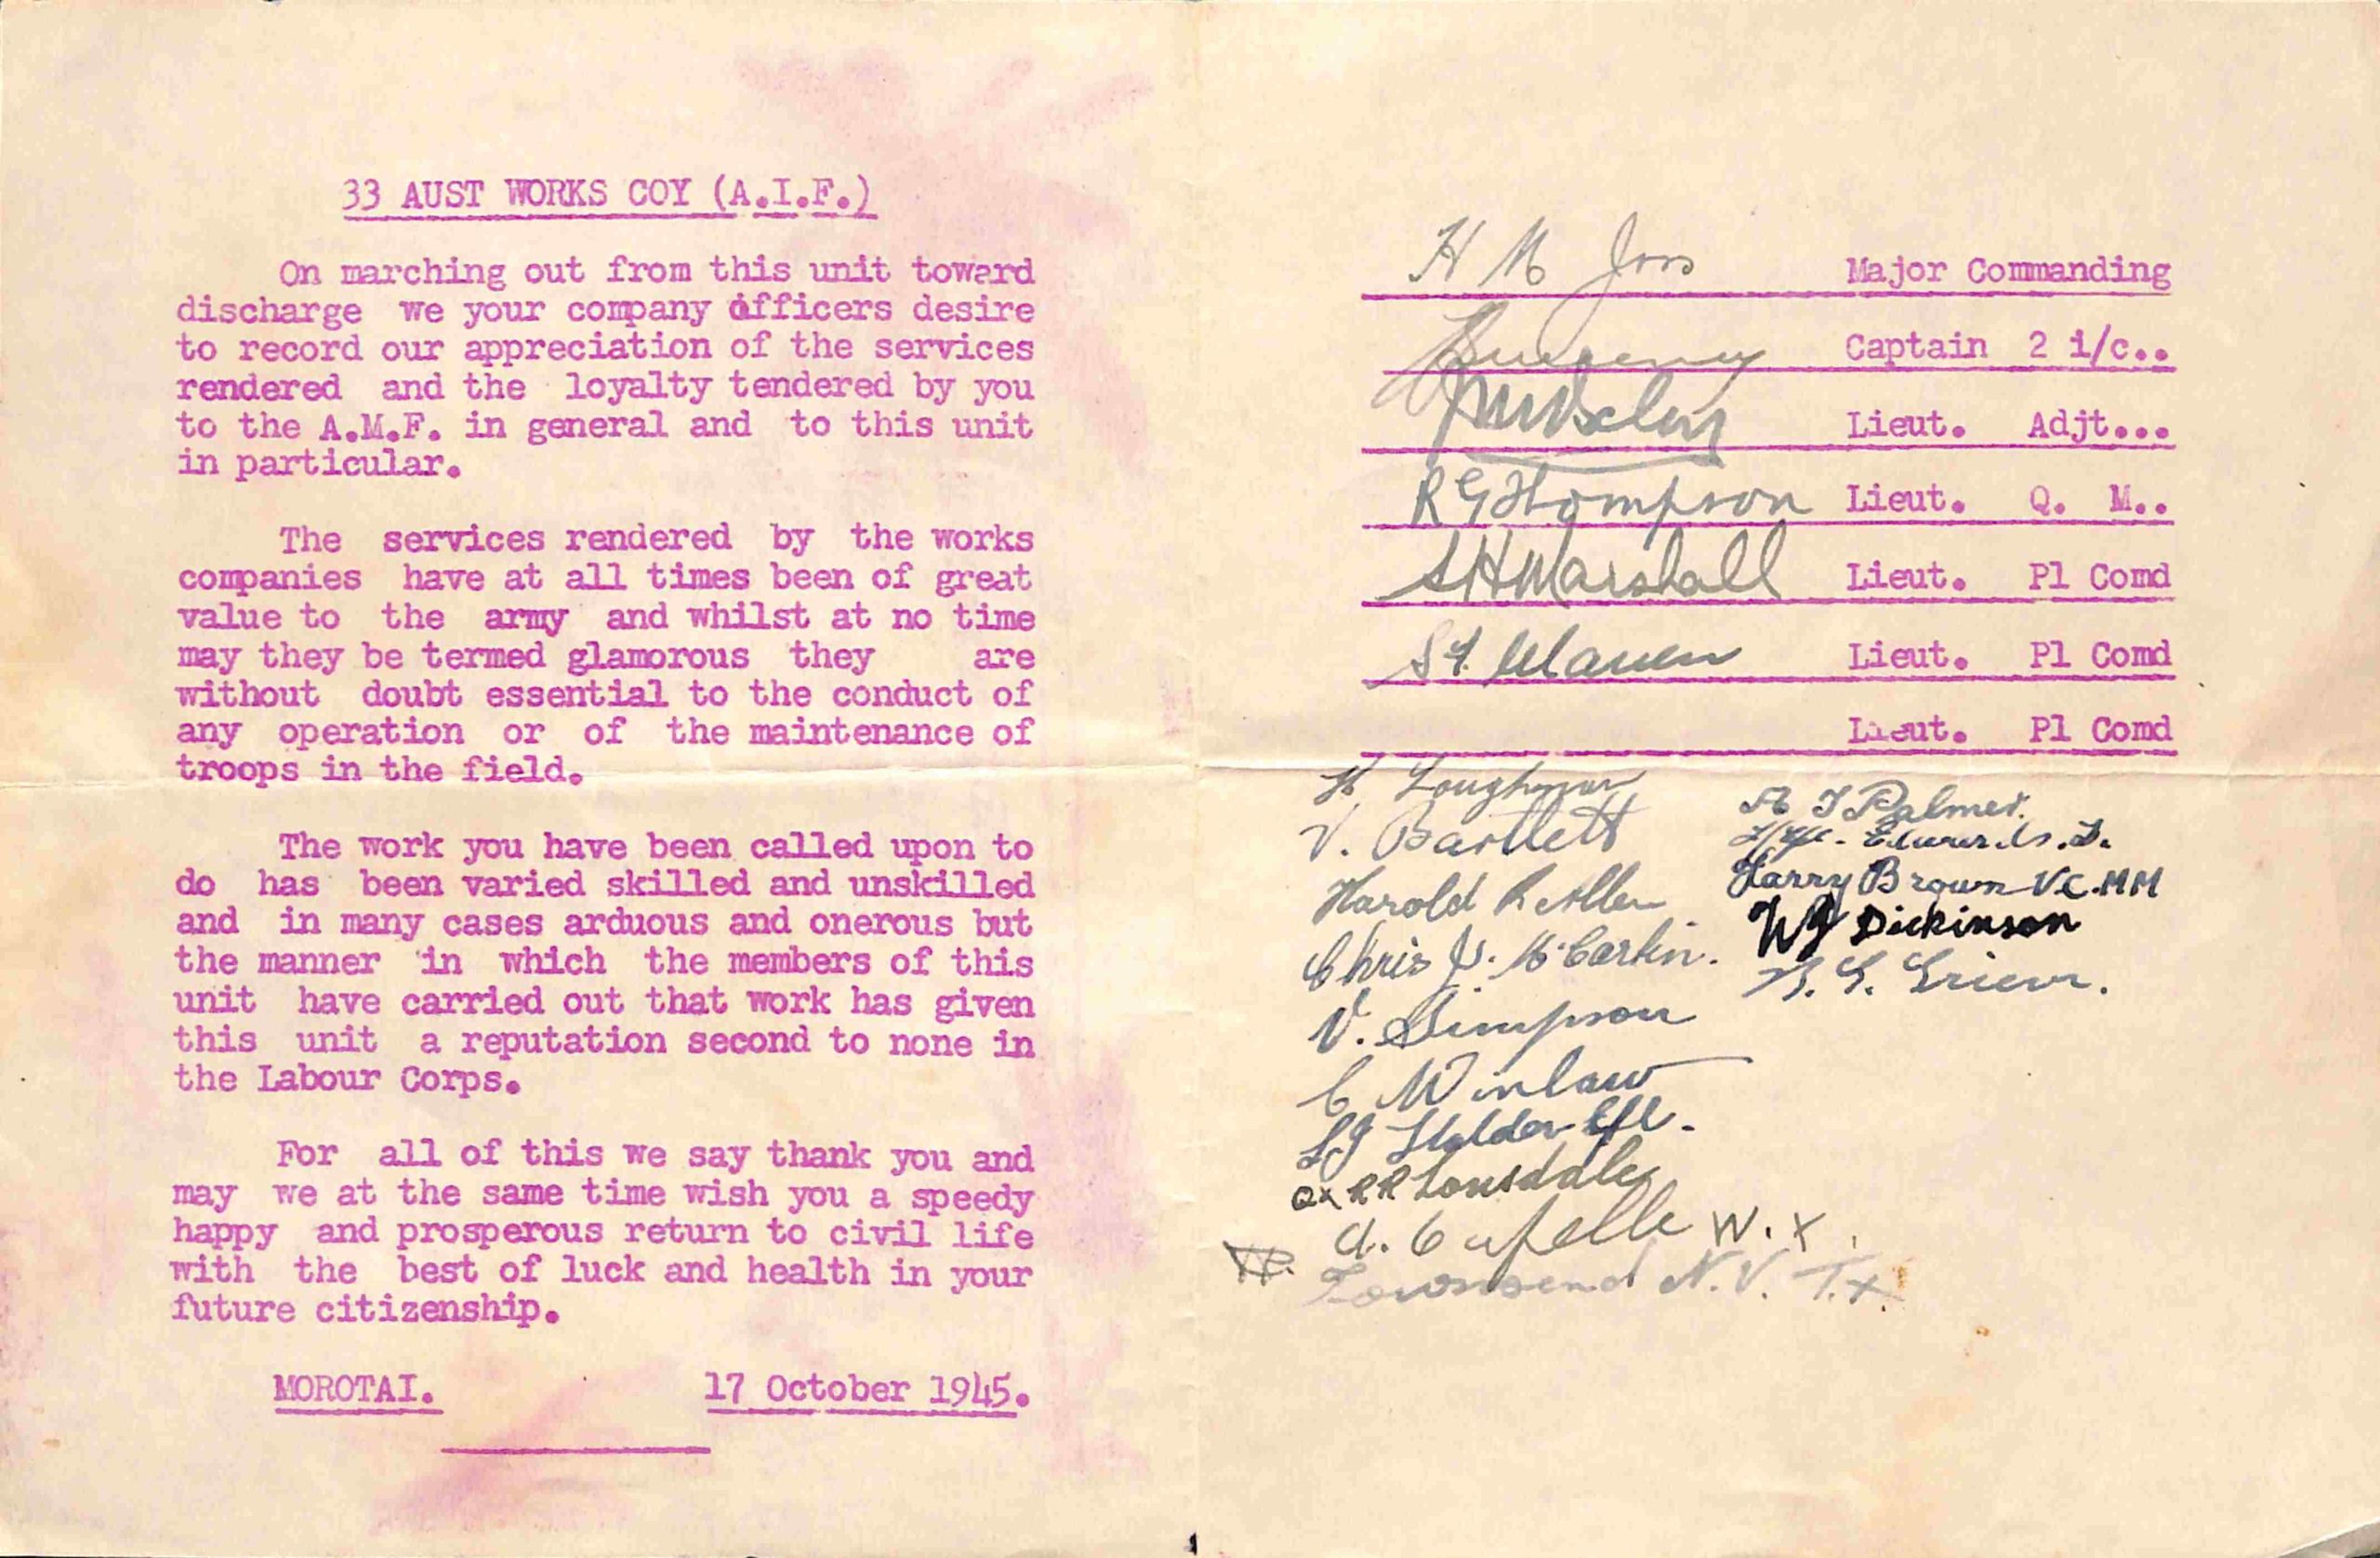 33 AUST WORKS COY (A.I.F.)
On marching out from this unit toward
discharge we your company officers desire
to record our appreciation of the services
rendered and the loyalty tendered by you
to the A.M.F. in general and to this unit
in particular.
The services rendered by the works
companies have at all times been of great
value to the army and whilst at no time
may they be termed glamorous they are
without doubt essential to the conduct of
any operation or of the maintenance of
troops in the field.
The work you have been called upon to
do has been varied skilled and unskilled
and in many cases arduous and onerous but
the manner in which the members of this
unit have carried out that work has given
this unit a reputation second to none in
the Labour Corps.
For all of this we say thank you and
may we at the same time wish you a speedy
happy and prosperous return to civil life
with the best of luck and health in your
future citizenship.
MOROTAI. 17 October 1945.
H M Joss Major Commanding
Captain 2 i/c..
Lieut. Adjt...
R G Thompson Lieut. Q. M..
S H Marshall Lieut. Pl Comd
Lieut. Pl Comd
Lieut. Pl Comd
V. Bartlett
Harold R Allen
Chris J. McCarkin.
V. Simpson
C Winlaw
L J Cpl.
QX R R Lonsdale
A. Capelle W.X.
Townsend N.V. T.X.
A J Palmer.
Edwards.
Harry Brown V.C. MM
W J Dickinson